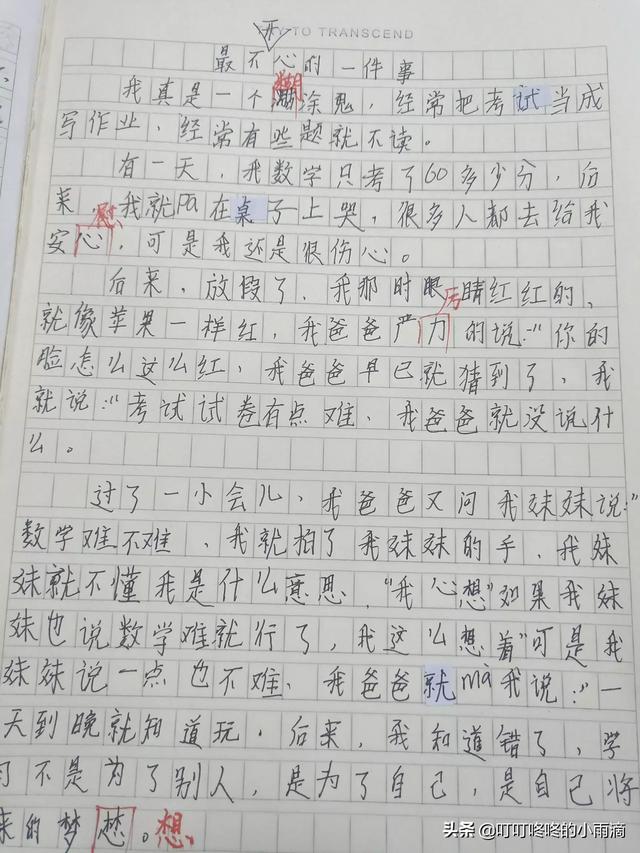 TO TRANSCEND
开
最不心的一件事
糊
我真是一个糊涂鬼，经常把考试当成
写作业，经常有些题就不读。
有一天，我数学只考了60多少分，后
来，我就pa在桌子上哭，很多人都去给我
慰
安心，可是我还是很伤心。
后来，放假了，我那时眼睛红红的，
厉
就像苹果一样红，我爸爸严力的说:"你的
脸怎么这么红，我爸爸早已就猜到了，我
就说:"考试试卷有点难，我爸爸就没说什
么。
过了一小会儿，我爸爸又问我妹妹说:"
数学难不难，我就拍了我妹妹的手，我妹
妹就不懂我是什么意思，"我心想"如果我妹
妹也说数学难就行了，我这么想着"可是我
妹妹说一点也不难，我爸爸就mà我说:"一
天到晚就知道玩，后来，我知道错了，学
习不是为了别人，是为了自己，是自己将
来的梦。想
头条 @叮叮咚咚的小雨滴